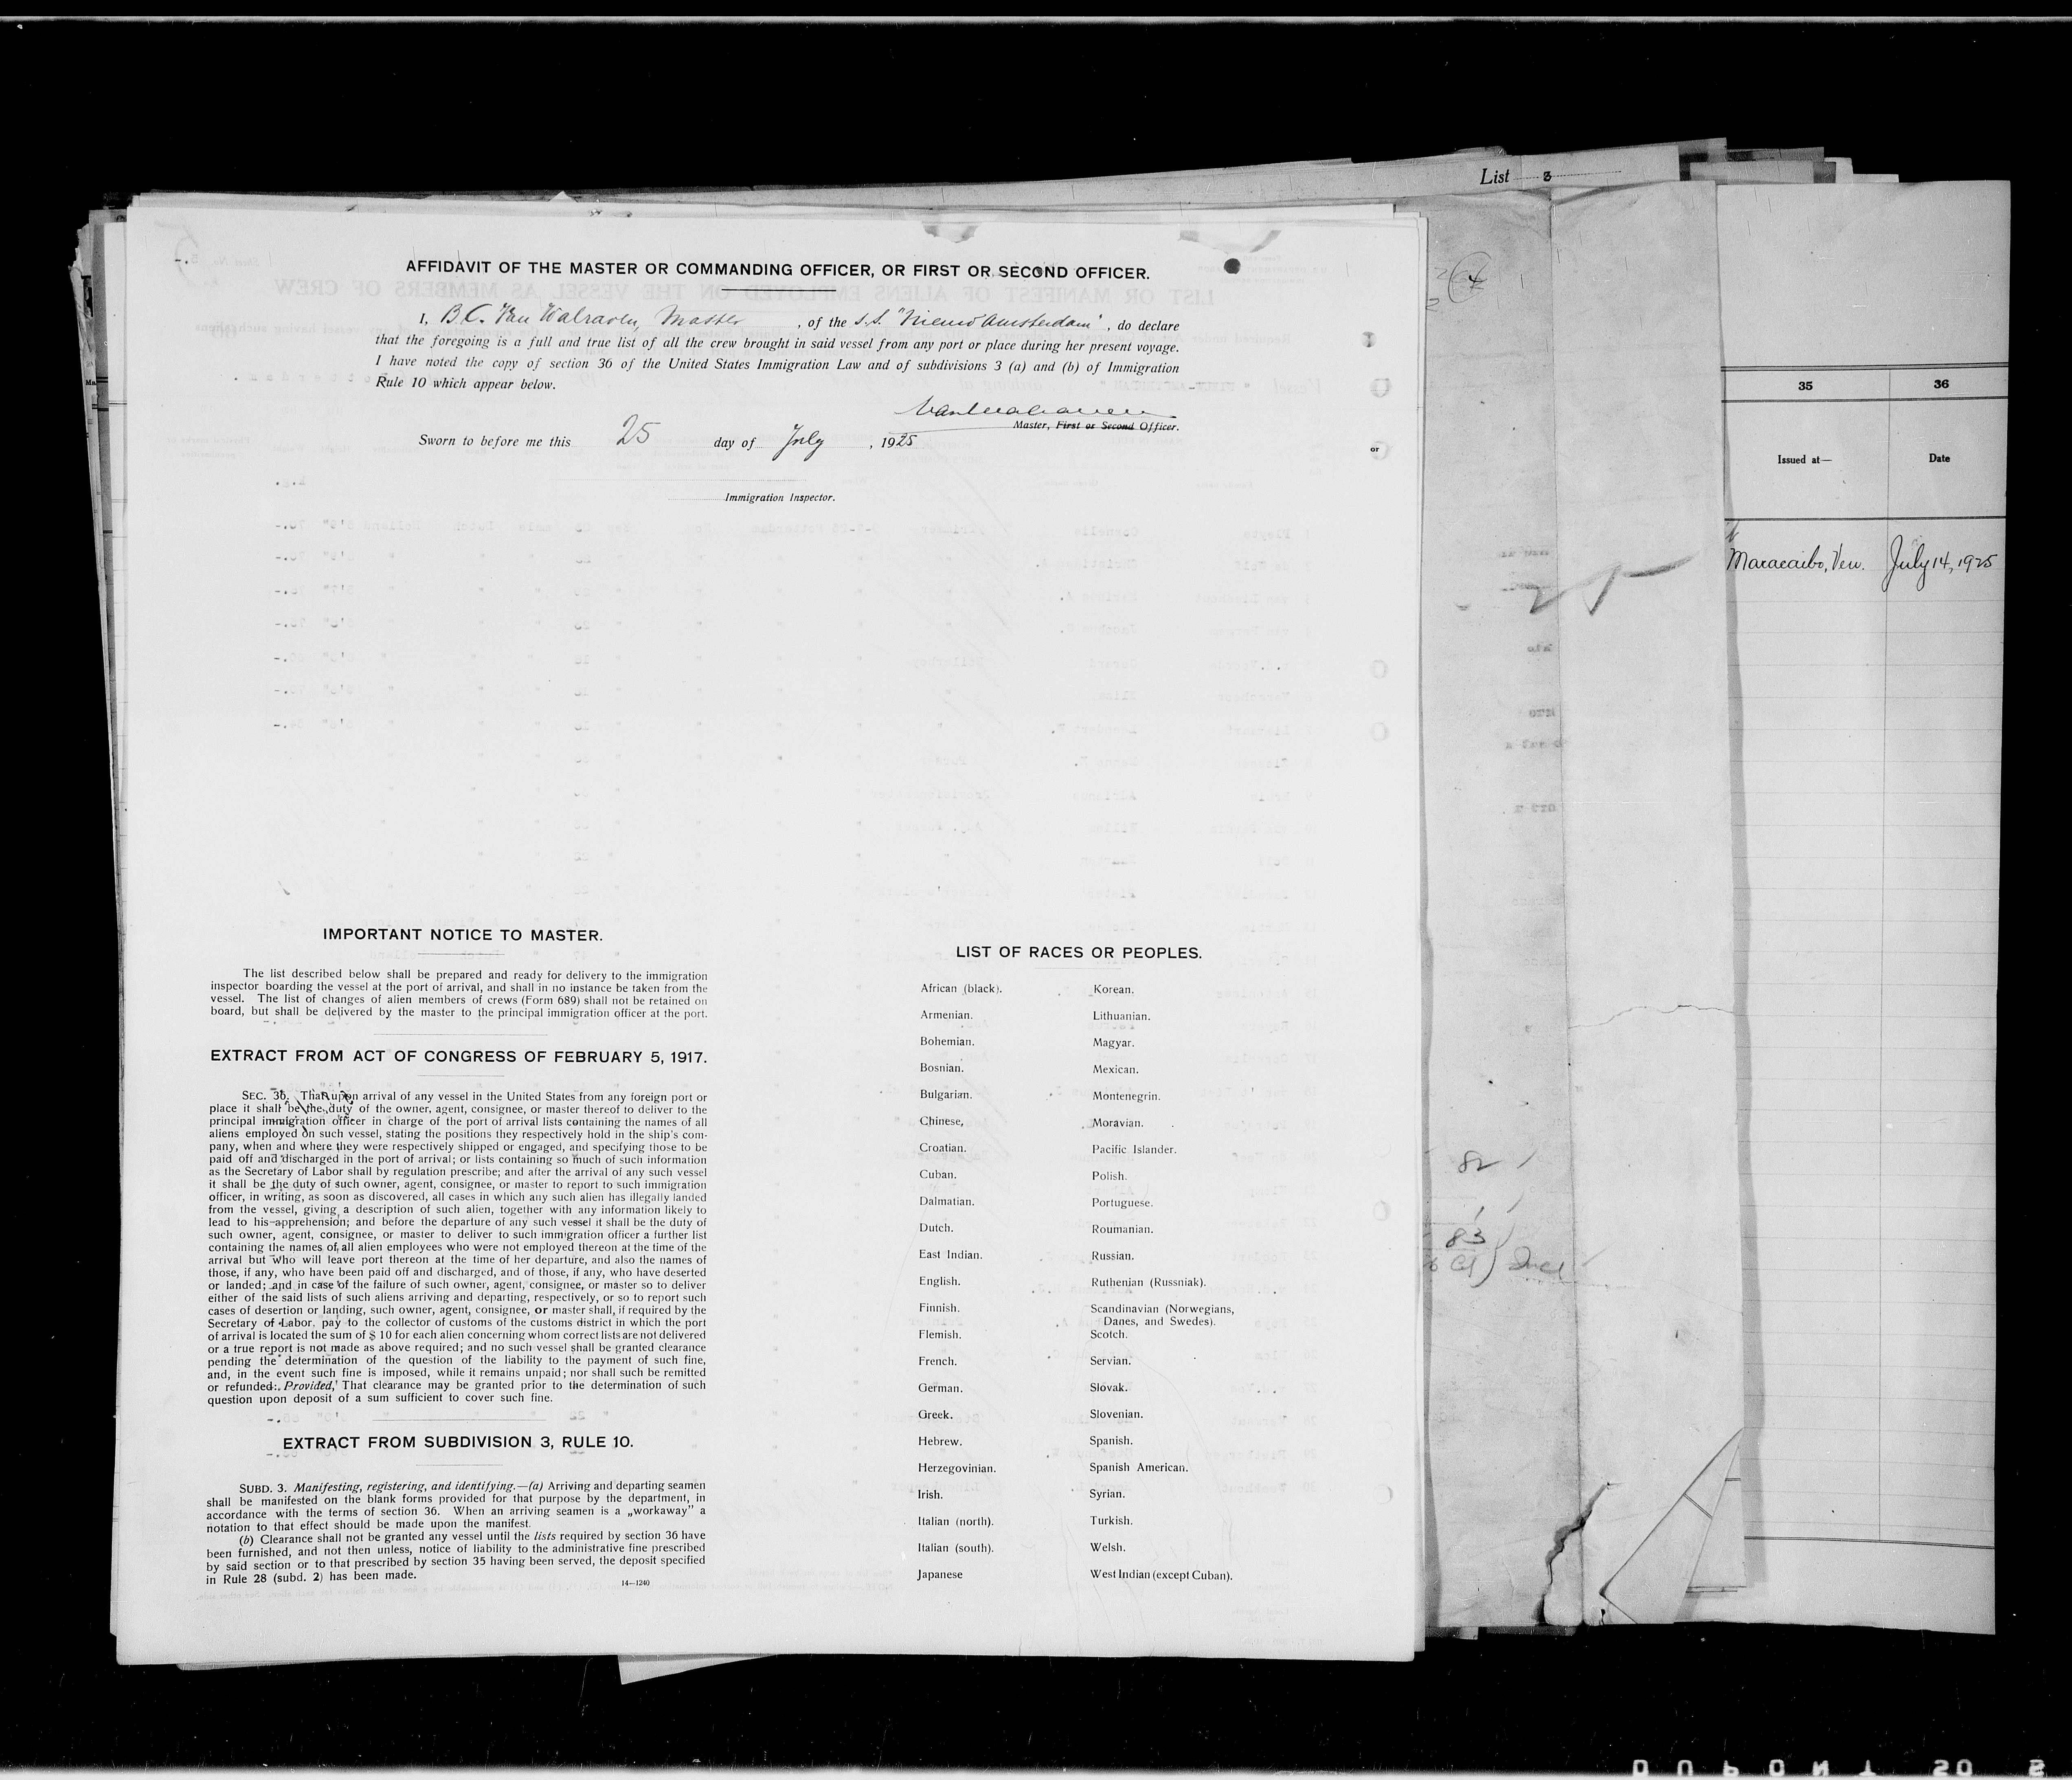 List 3
AFFIDAVIT OF THE MASTER OR COMMANDING OFFICER, OR FIRST OR SECOND OFFICER.
I, B.C. Van Walraven, Master, of the s.s. "Nieuw Amsterdam", do declare
that the foregoing is a full and true list of all the crew brought in said vessel from any port or place during her present voyage.
I have noted the copy of section 36 of the United States Immigration Law and of subdivisions 3 (a) and (b) of Immigration
Rule 10 which appear below.
Master, First or Second Officer.
Sworn to before me this 25 day of July, 1925
Immigration Inspector.
IMPORTANT NOTICE TO MASTER.
The list described below shall be prepared and ready for delivery to the immigration
inspector boarding the vessel at the port of arrival, and shall in no instance be taken from the
vessel. The list of changes of alien members of crews (Form 689) shall not be retained on
board, but shall be delivered by the master to the principal immigration officer at the port.
EXTRACT FROM ACT OF CONGRESS OF FEBRUARY 5, 1917.
SEC. 36. That upon arrival of any vessel in the United States from any foreign port or
place it shall be the duty of the owner, agent, consignee, or master thereof to deliver to the
principal immigration officer in charge of the port of arrival lists containing the names of all
aliens employed on such vessel, stating the positions they respectively hold in the ship's com-
pany, when and where they were respectively shipped or engaged, and specifying those to be
paid off and discharged in the port of arrival; or lists containing so much of such information
as the Secretary of Labor shall by regulation prescribe; and after the arrival of any such vessel
it shall be the duty of such owner, agent, consignee, or master to report to such immigration
officer, in writing, as soon as discovered, all cases in which any such alien has illegally landed
from the vessel, giving a description of such alien, together with any information likely to
lead to his apprehension; and before the departure of any such vessel it shall be the duty of
such owner, agent, consignee, or master to deliver to such immigration officer a further list
containing the names of all alien employees who were not employed thereon at the time of the
arrival but who will leave port thereon at the time of her departure, and also the names of
those, if any, who have been paid off and discharged, and of those, if any, who have deserted
or landed; and in case of the failure of such owner, agent, consignee, or master so to deliver
either of the said lists of such aliens arriving and departing, respectively, or so to report such
cases of desertion or landing, such owner, agent, consignee, or master shall, if required by the
Secretary of Labor, pay to the collector of customs of the customs district in which the port
of arrival is located the sum of $ 10 for each alien concerning whom correct lists are not delivered
or a true report is not made as above required; and no such vessel shall be granted clearance
pending the determination of the question of the liability to the payment of such fine,
and, in the event such fine is imposed, while it remains unpaid; nor shall such be remitted
or refunded: Provided, That clearance may be granted prior to the determination of such
question upon deposit of a sum sufficient to cover such fine.
EXTRACT FROM SUBDIVISION 3, RULE 10.
SUBD. 3. Manifesting, registering, and identifying.—(a) Arriving and departing seamen
shall be manifested on the blank forms provided for that purpose by the department, in
accordance with the terms of section 36. When an arriving seamen is a „workaway" a
notation to that effect should be made upon the manifest.
(b) Clearance shall not be granted any vessel until the lists required by section 36 have
been furnished, and not then unless, notice of liability to the administrative fine prescribed
by said section or to that prescribed by section 35 having been served, the deposit specified
in Rule 28 (subd. 2) has been made.
14—1240
LIST OF RACES OR PEOPLES.
African (black).
Armenian.
Bohemian.
Bosnian.
Bulgarian.
Chinese,
Croatian.
Cuban.
Dalmatian.
Dutch.
East Indian.
English.
Finnish.
Flemish.
French.
German.
Greek.
Hebrew.
Herzegovinian.
Irish.
Italian (north).
Italian (south).
Japanese
Korean.
Lithuanian.
Magyar.
Mexican.
Montenegrin.
Moravian.
Pacific Islander.
Polish.
Portuguese.
Roumanian.
Russian.
Ruthenian (Russniak).
Scandinavian (Norwegians,
Danes, and Swedes).
Scotch.
Servian.
Slovak.
Slovenian.
Spanish.
Spanish American.
Syrian.
Turkish.
Welsh.
West Indian (except Cuban).
or
82
83
35 36
Issued at— Date
Maracaibo, Ven. July 14, 1925